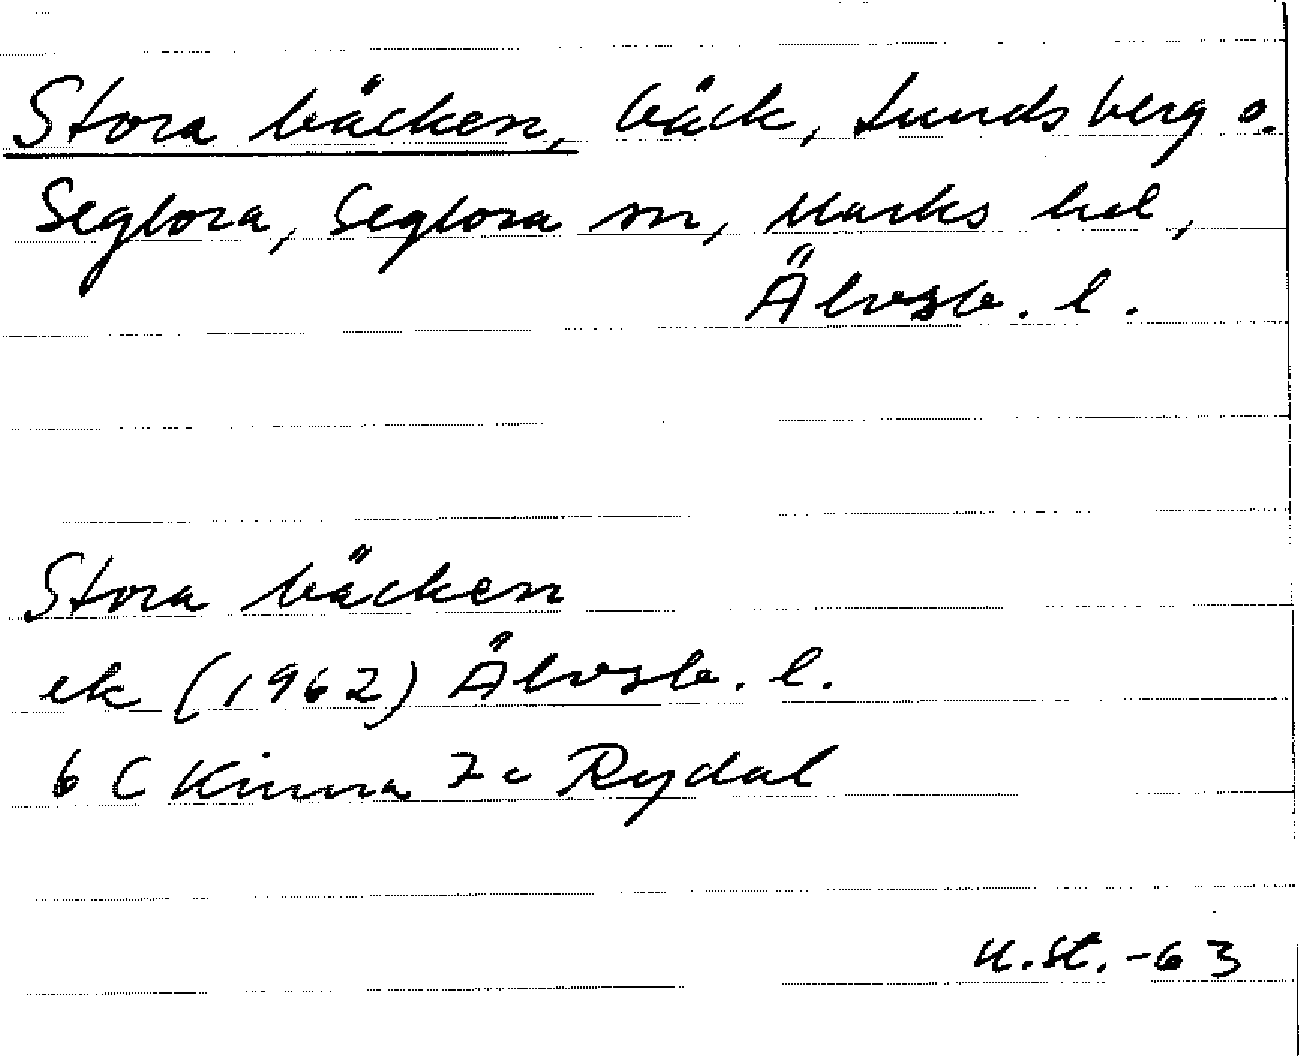 Stora bäcken, bäck, Lundsberg o.
Seglora, Seglora sn, Marks hd,
Älvsb. l.
Stora bäcken
ek (1962) Älvsb. l.
6 C Kinna 7 c Rydal
U.St. -63